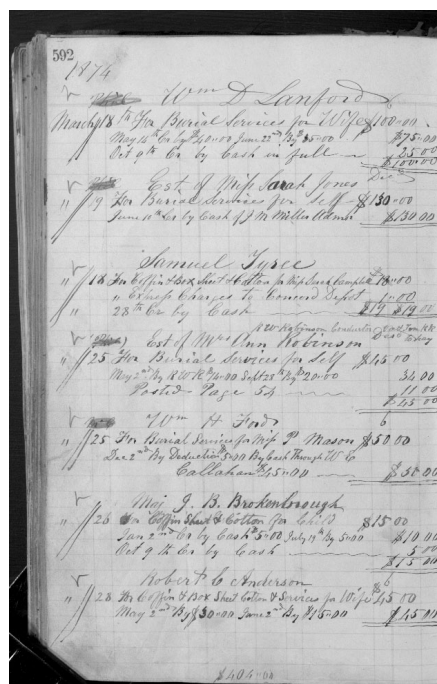 592
1874
Wm D Lanford
March 18th For Burial Services for Wife $100.00
May 14th Cr by $40.00 June 22nd By $35.00 $75.00
Oct 9th Cr by Cash in full 25.00
$100.00
Est. of Miss Sarah Jones Decd
" 19 For Burial Services for Self $130.00
June 11th Cr by Cash of J M Miller Admr $130.00
Samuel Tyree
" 18 For Coffin & Box Sheet & Cotton for Miss Campbell $18.00
" Express Charges to Concord Depot 1.00
28th Cr by Cash $19 $19.00
R W Robinson Conductor
Est of Mrs Ann Robinson Decd
" 25 For Burial Services for Self $45.00
May 2nd By R W R $14.00 Sept 28th By $20.00 34.00
Posted Page 54 11.00
$45.00
Wm H Ford
" 25 For Burial Services for Miss P Mason $50.00
Dec 2nd By Deduction $5.00 By Cash Through W C
Callahan $45.00 $50.00
Maj J. B. Brokenborough
" 26 For Coffin Sheet & Cotton for Child $15.00
Jan 2nd Cr by Cash $5.00 July 19th By 5.00 $10.00
Oct 9th Cr by Cash 5.00
$15.00
Robert C Anderson
" 28 For Coffin & Box Sheet Cotton & Services for Wife $45.00
May 2nd By $30.00 June 2nd By $15.00 $45.00
$404.00